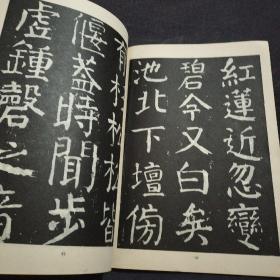 紅蓮近忽變
碧今又白矣
池北下壇傍
有杉松松皆
偃蓋時聞步
虛鍾磬之音